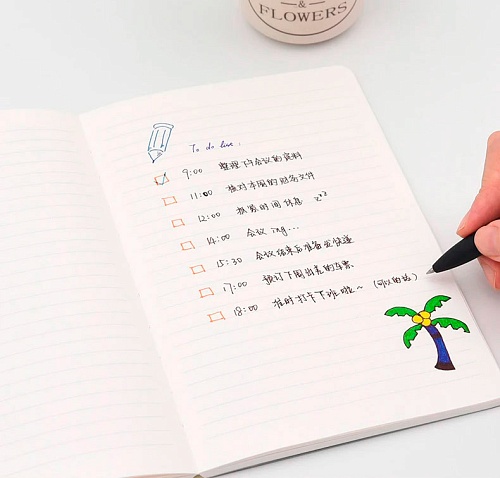 &
FLOWERS
To do live:
9:00 整理下午会议的资料
11:00 核对本周的财务文件
12:00 抓紧时间休息 zzz
14:00 会议 ing...
15:30 会议结束后准备发快递
17:00 预订下周出差的车票
18:00 准时打卡下班啦~ (可以的话)